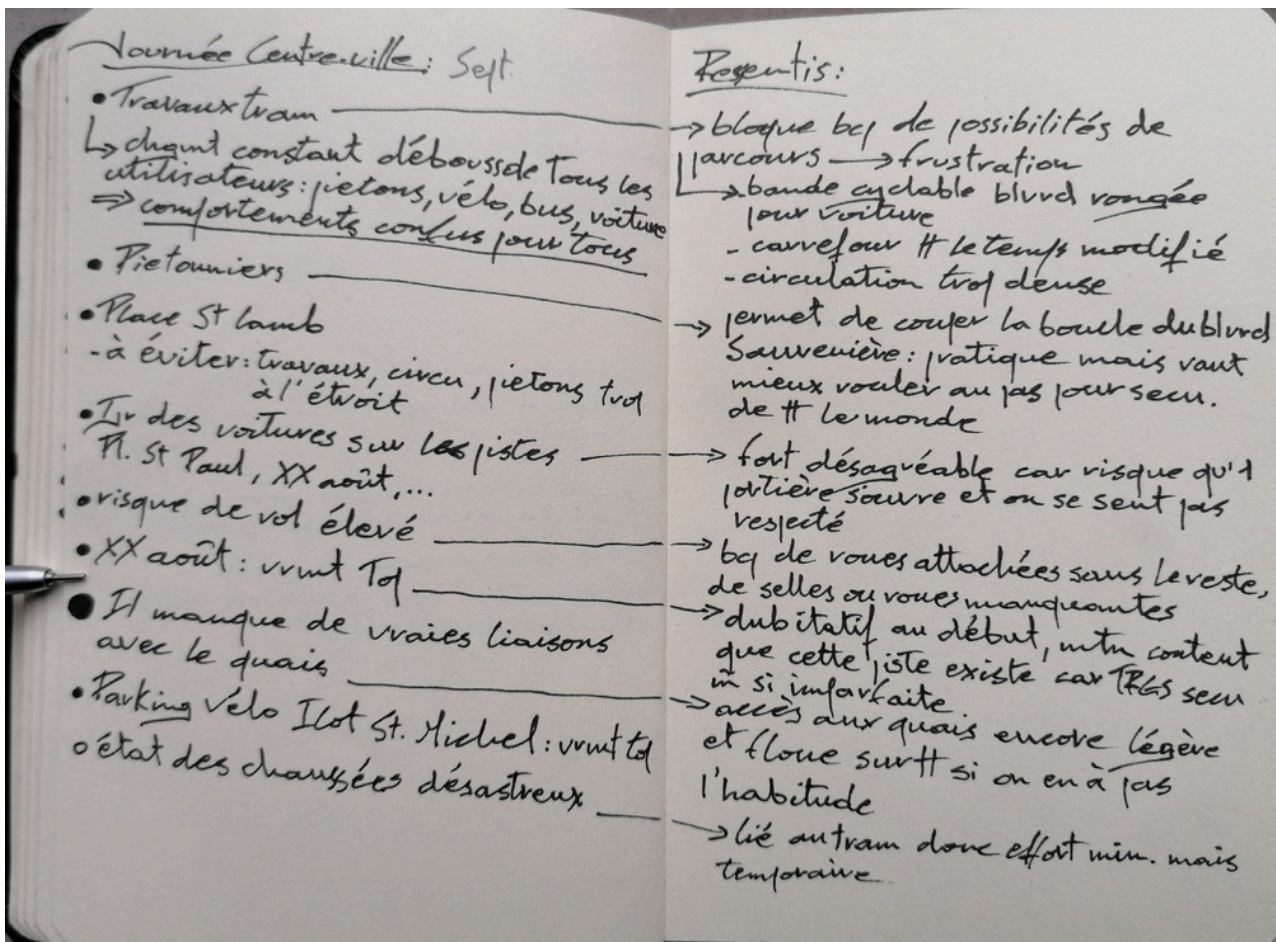 Journée Centre-ville: Sept.
• Travaux tram
↳ chgmt constant déboussole tous les
utilisateurs: piétons, vélo, bus, voiture
⇒ comportements confus pour tous
• Pietonniers
• Place St lamb
- à éviter: travaux, circu, piétons trop
à l'étroit
• des voitures sur les pistes
Pl. St Paul, XX août,...
• risque de vol élevé
• XX août: vrmt Top
• Il manque de vraies liaisons
avec le quais
• Parking Vélo Ilot St. Michel: vrmt top
o état des chaussées désastreux
Ressentis:
→ bloque bcp de possibilités de
parcours → frustration
↳ bande cyclable blvrd rongée
pour voiture
- carrefour tt le temps modifié
- circulation trop dense
→ permet de couper la boucle du blvrd
Sauvenière: pratique mais vaut
mieux rouler au pas pour secu.
de tt le monde
→ fort désagréable car risque qu'1
portière s'ouvre et on se sent pas
respecté
→ bcp de roues attachées sans le reste,
de selles ou roues manquantes
→ dubitatif au début, mtn content
que cette piste existe car TRES secu
m̂ si imparfaite
→ accès aux quais encore légère
et floue surtt si on en à pas
l'habitude
→ lié au tram donc effort min. mais
temporaire